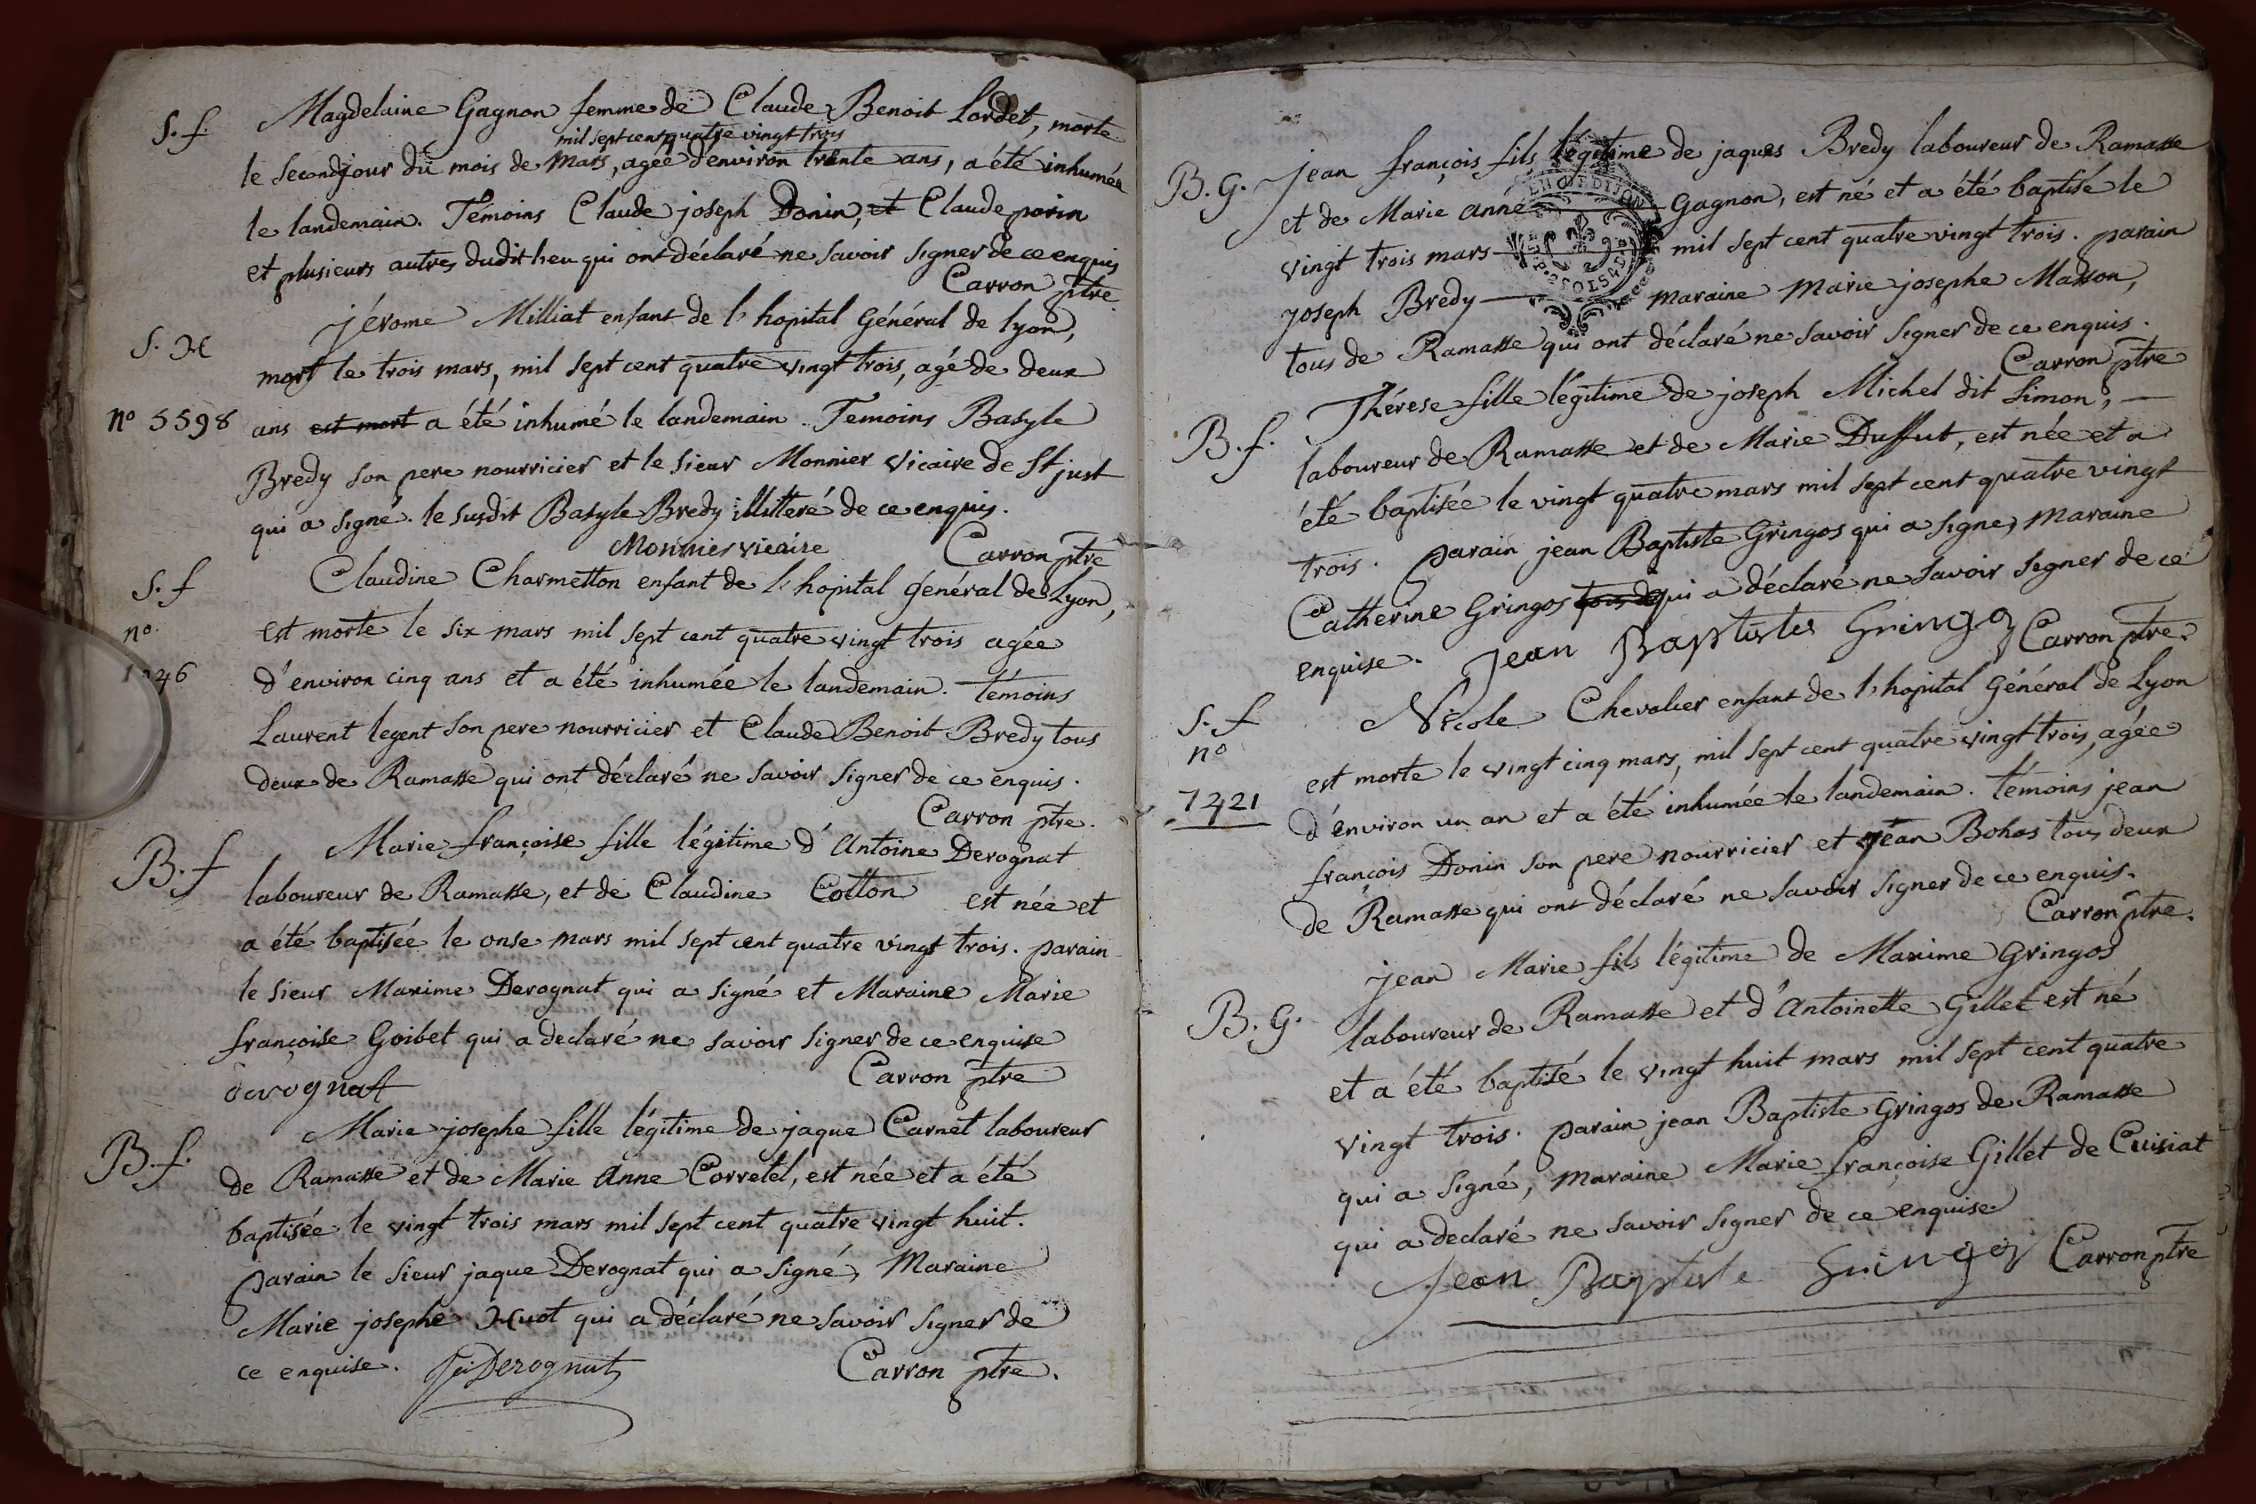 S. f. Magdelaine Gagnon femme de Claude Benoit Lordet, morte
mil sept cent quatre vingt trois
le second jour du mois de Mars, agée d'environ trente ans, a été inhumée
le landemain. Témoins Claude joseph Donin, et Claude porin
et plusieurs autres dudit lieu qui ont déclaré ne savoir signer de ce enquis
Carron ptre
S. H jérome Milliat enfant de l'hopital Général de lyon,
mort le trois mars, mil sept cent quatre vingt trois, agé de deux
n° 5598 ans est mort a été inhumé le landemain. Temoins Basyle
Bredy son pere nourricier et le sieur Monnier vicaire de St just
qui a signé. le susdit Basyle Bredy illitteré de ce enquis.
Monnier vicaire Carron ptre
S. f Claudine Charmetton enfant de l'hopital général de Lyon,
n° est morte le six mars mil sept cent quatre vingt trois agée
46 d'environ cinq ans et a été inhumée le landemain. témoins
Laurent legent son pere nourricier et Claude Benoit Bredy tous
deux de Ramasse qui ont déclaré ne savoir signer de ce enquis.
Carron ptre.
B. f Marie françoise fille légitime d'Antoine Derognat
laboureur de Ramasse, et de Claudine Cotton est née et
a été baptisée le onse mars mil sept cent quatre vingt trois. parain
le sieur Maxime Derognat qui a signé et Maraine Marie
françoise Goibet qui a declaré ne savoir signer de ce enquise
derognat Carron ptre
B. f. Marie josephe fille légitime de jaque Carnet laboureur
de Ramasse et de Marie Anne Corretel, est née et a été
baptisée le vingt trois mars mil sept cent quatre vingt huit.
parain le sieur jaque Derognat qui a signé, Maraine
Marie josephe Huot qui a déclaré ne savoir signer de
ce enquise. Derognat Carron ptre.
B. G. jean françois fils légitime de jaques Bredy laboureur de Ramasse
et de Marie anne Gagnon, est né et a été baptisé le
vingt trois mars mil sept cent quatre vingt trois. parain
joseph Bredy maraine Marie josephe Masson,
tous de Ramasse qui ont déclaré ne savoir signer de ce enquis.
Carron ptre
B. f. Thérese fille légitime de joseph Michel dit Simon,
laboureur de Ramasse et de Marie Duffut, est née et a
été baptisée le vingt quatre mars mil sept cent quatre vingt
trois. parain jean Baptiste Gringos qui a signe, Maraine
Catherine Gringos qui a déclaré ne savoir signer de ce
enquise. Jean Baptiste Gringoz Carron ptre.
S. f Nicole Chevalier enfant de l'hopital Général de Lyon
n° est morte le vingt cinq mars, mil sept cent quatre vingt trois, agée
7421 d'environ un an et a été inhumée le landemain. témoins jean
françois Donin son pere nourricier et jean Bohas tous deux
de Ramasse qui ont déclaré ne savoir signer de ce enquis.
Carron ptre.
jean Marie fils légitime de Maxime Gringos
B. G. laboureur de Ramasse et d'Antoinette Gillet est né
et a été baptisé le vingt huit mars mil sept cent quatre
vingt trois. parain jean Baptiste Gringos de Ramasse
qui a signé, maraine Marie françoise Gillet de Cuisiat
qui a declaré ne savoir signer de ce enquise
Jean Baptiste Gringoz Carron ptre